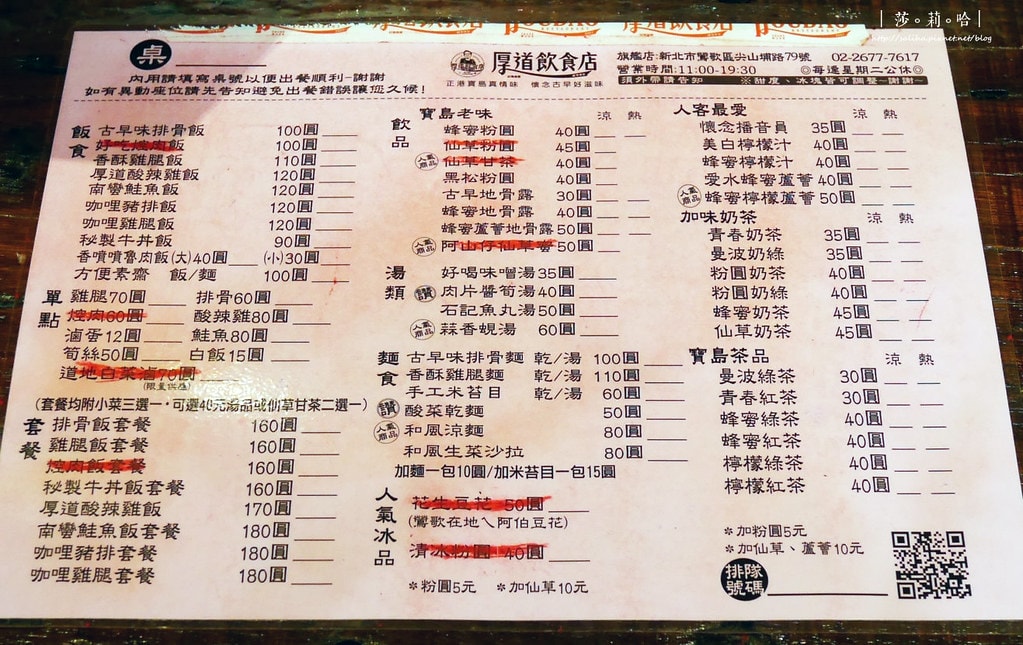 ｜莎。莉。哈｜
http://saliha.pixnet.net/blog
厚道飲食店
桌
內用請填寫桌號以便出餐順利-謝謝
如有異動座位請先告知避免出餐錯誤讓您久候!
厚道飲食店
正港寶島真情味 懷念古早好滋味
旗艦店:新北市鶯歌區尖山埔路79號 02-2677-7617
營業時間:11:00-19:30 ◎每逢星期二公休◎
須外帶請告知 ※甜度、冰塊皆可調整~謝謝~
飯食
古早味排骨飯 100圓
好吃焢肉飯 100圓
香酥雞腿飯 110圓
厚道酸辣雞飯 120圓
南蠻鮭魚飯 120圓
咖哩豬排飯 120圓
咖哩雞腿飯 120圓
秘製牛丼飯 90圓
香噴噴魯肉飯(大)40圓 (小)30圓
方便素齋 飯/麵 100圓
單點
雞腿70圓 排骨60圓
焢肉60圓 酸辣雞80圓
滷蛋12圓 鮭魚80圓
筍絲50圓 白飯15圓
道地白菜滷70圓
(限量供應)
(套餐均附小菜三選一,可選40元湯品或仙草甘茶二選一)
套餐
排骨飯套餐 160圓
雞腿飯套餐 160圓
焢肉飯套餐 160圓
秘製牛丼飯套餐 160圓
厚道酸辣雞飯 170圓
南蠻鮭魚飯套餐 180圓
咖哩豬排套餐 180圓
咖哩雞腿套餐 180圓
飲品
寶島老味 涼 熱
蜂蜜粉圓 40圓
仙草粉圓 45圓
人氣商品 仙草甘茶 40圓
黑松粉圓 40圓
古早地骨露 30圓
蜂蜜地骨露 40圓
蜂蜜蘆薈地骨露50圓
人氣商品 阿山仔仙草蜜 50圓
湯類
好喝味噌湯35圓
讚 肉片醬筍湯40圓
石記魚丸湯50圓
人氣商品 蒜香蜆湯 60圓
麵食
古早味排骨麵 乾/湯 100圓
香酥雞腿麵 乾/湯 110圓
手工米苔目 乾/湯 60圓
讚 酸菜乾麵 50圓
人氣商品 和風涼麵 80圓
和風生菜沙拉 80圓
加麵一包10圓/加米苔目一包15圓
人氣冰品
花生豆花 50圓
(鶯歌在地ㄟ阿伯豆花)
清冰粉圓 40圓
*粉圓5元 *加仙草10元
人客最愛 涼 熱
懷念播音員 35圓
美白檸檬汁 40圓
蜂蜜檸檬汁 40圓
愛水蜂蜜蘆薈 40圓
人氣商品 蜂蜜檸檬蘆薈 50圓
加味奶茶 涼 熱
青春奶茶 35圓
曼波奶綠 35圓
粉圓奶茶 40圓
粉圓奶綠 40圓
蜂蜜奶茶 45圓
仙草奶茶 45圓
寶島茶品 涼 熱
曼波綠茶 30圓
青春紅茶 30圓
蜂蜜綠茶 40圓
蜂蜜紅茶 40圓
檸檬綠茶 40圓
檸檬紅茶 40圓
*加粉圓5元
*加仙草、蘆薈10元
排隊號碼